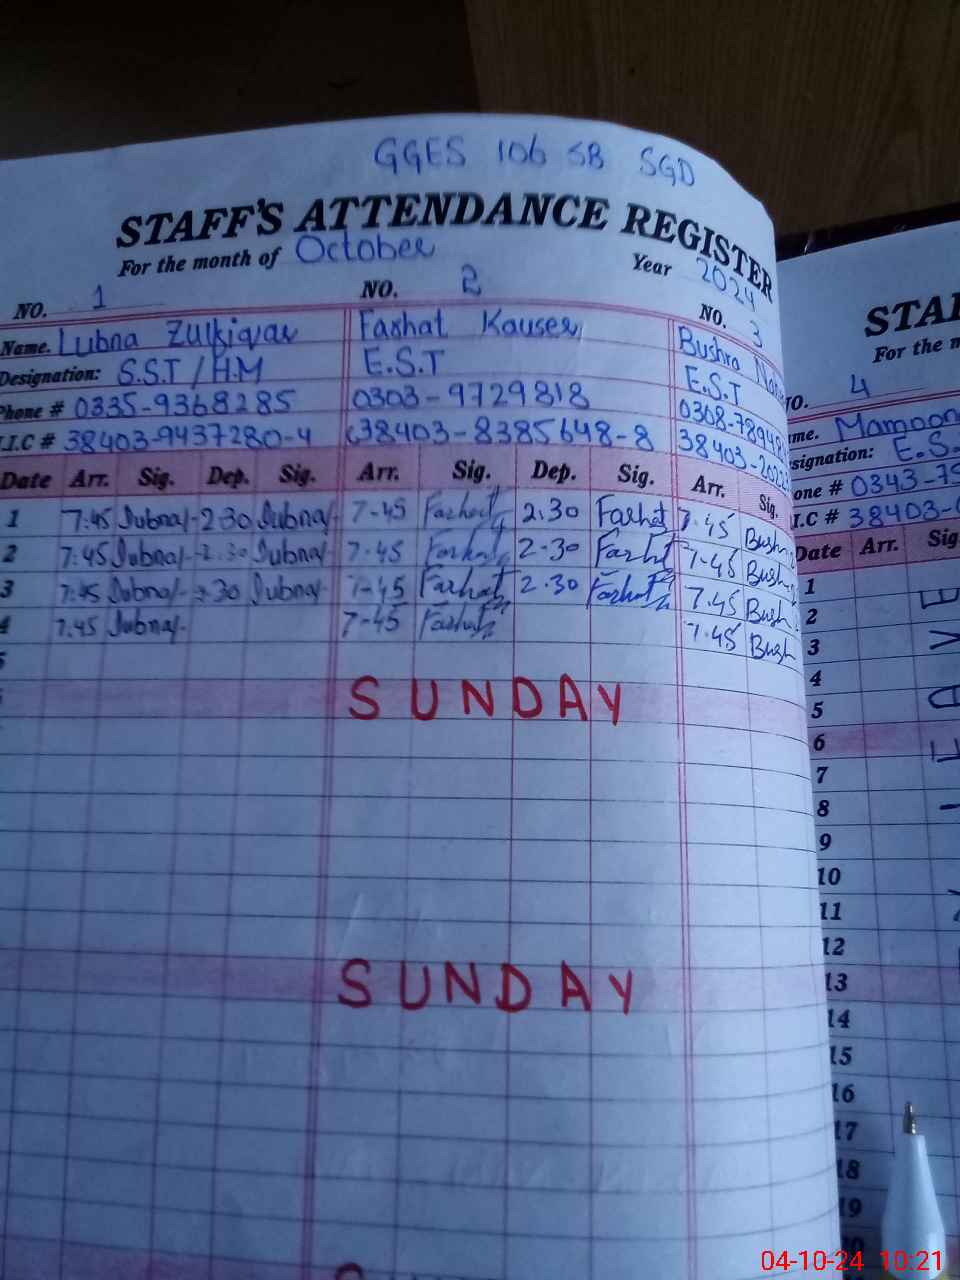 GGES 106 SB SGD
STAFF'S ATTENDANCE REGISTER
For the month of October Year 2024
NO. 1 NO. 2 NO. 3
Name. Lubna Zulfiqar Farhat Kauser Bushra
Designation: S.S.T / H.M E.S.T E.S.T
Phone # 0335-9368285 0303-9729818 0308-7894
I.C # 38403-9437280-4 38403-8385648-8 38403-
Date Arr. Sig. Dep. Sig. Arr. Sig. Dep. Sig. Arr. Sig.
1 7:45 Lubna 2:30 Lubna 7-45 Farhat 2.30 Farhat 7.45 Bush
2 7:45 Lubna 2:30 Lubna 7-45 Farhat 2-30 Farhat 7-45 Bush
3 7:45 Lubna 2:30 Lubna 7-45 Farhat 2.30 Farhat 7.45 Bush
4 7.45 Lubna 7-45 Farhat 7.45 Bush
5
SUNDAY
SUNDAY
STA
For the m
NO. 4
me. Mamoon
signation: E.S.
one # 0343-75
I.C # 38403-
Date Arr. Sig
1
2
3
4
5
6
7
8
9
10
11
12
13
14
15
16
17
18
19
20
04-10-24 10:21